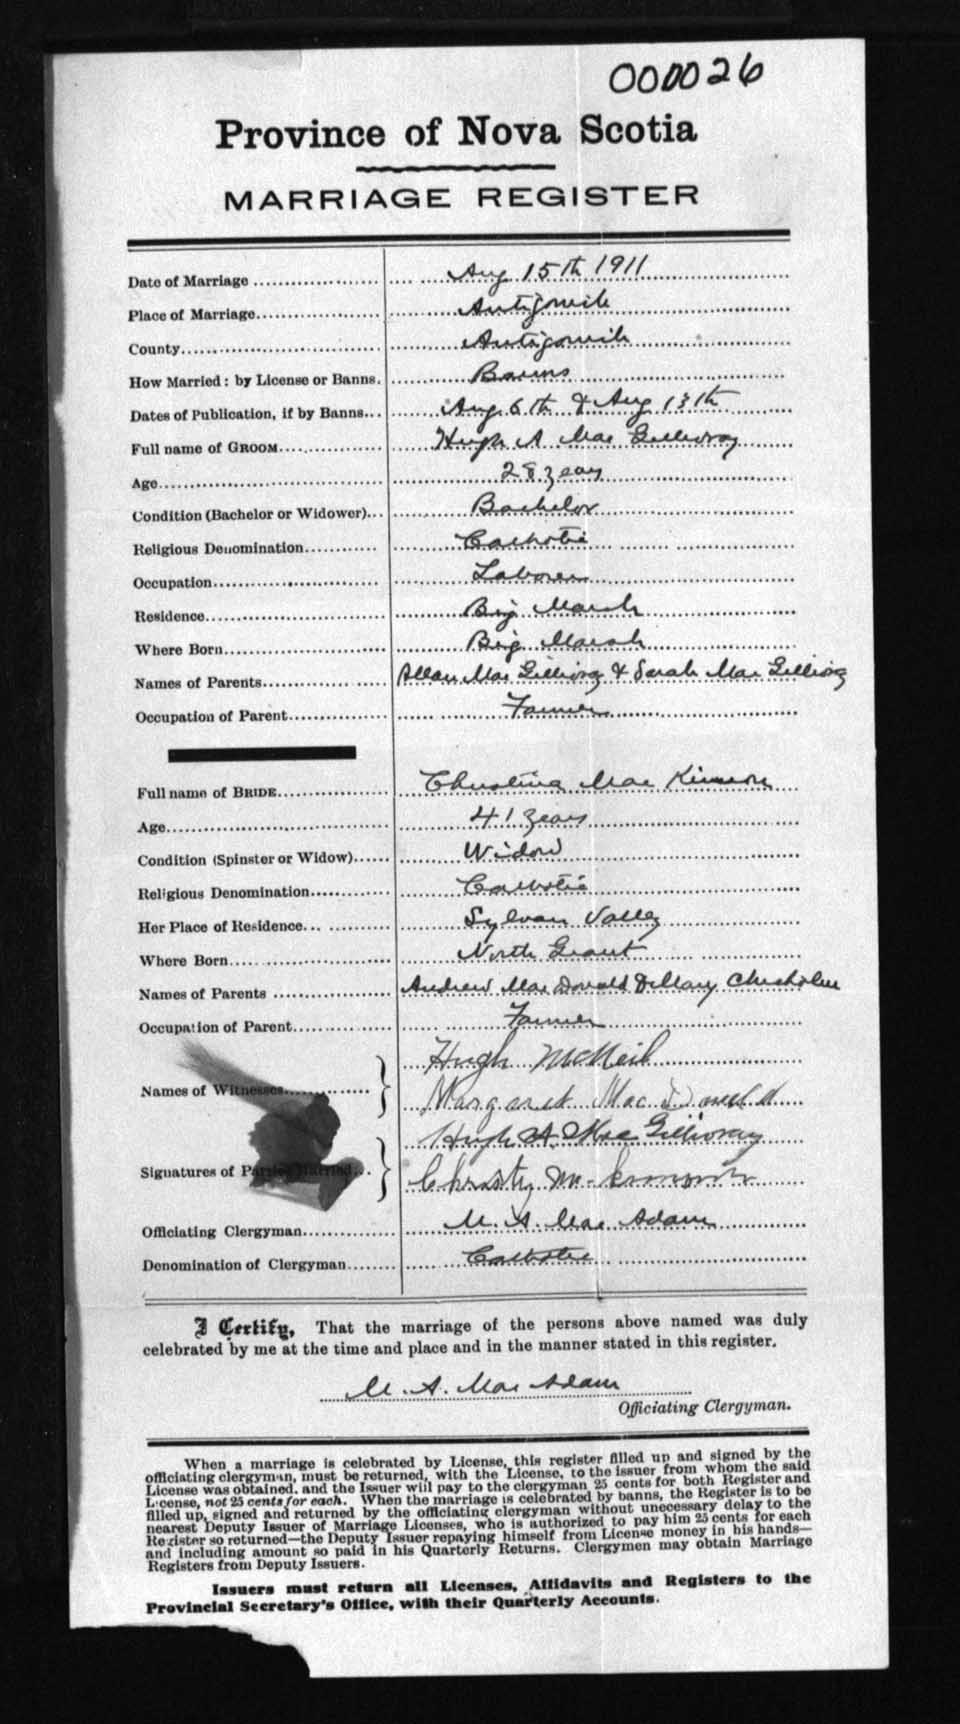 000026
Province of Nova Scotia
MARRIAGE REGISTER
Date of Marriage Aug 15th 1911
Place of Marriage Antigonish
County Antigonish
How Married: by License or Banns. Banns
Dates of Publication, if by Banns Aug 6th & Aug 13th
Full name of GROOM Hugh A Mac Gillivray
Age 28 years
Condition (Bachelor or Widower) Bachelor
Religious Denomination Catholic
Occupation Laborer
Residence Big Marsh
Where Born Big Marsh
Names of Parents Allan Mac Gillivray & Sarah Mac Gillivray
Occupation of Parent Farmer
Full name of BRIDE Christina Mac Kinnon
Age 41 years
Condition (Spinster or Widow) Widow
Religious Denomination Catholic
Her Place of Residence Sylvan Valley
Where Born North Grant
Names of Parents Andrew Mac Donald & Mary Chisholm
Occupation of Parent Farmer
Hugh McNeil
Names of Witnesses
Margaret Mac Donald
Hugh A. Mac Gillivray
Signatures of Parties Married
Christy McKinnon
Officiating Clergyman M. A. Mac Adam
Denomination of Clergyman Catholic
I Certify, That the marriage of the persons above named was duly
celebrated by me at the time and place and in the manner stated in this register.
M. A. Mac Adam
Officiating Clergyman.
When a marriage is celebrated by License, this register filled up and signed by the
officiating clergyman, must be returned, with the License, to the issuer from whom the said
License was obtained, and the Issuer will pay to the clergyman 25 cents for both Register and
License, not 25 cents for each. When the marriage is celebrated by banns, the Register is to be
filled up, signed and returned by the officiating clergyman without unecessary delay to the
nearest Deputy Issuer of Marriage Licenses, who is authorized to pay him 25 cents for each
Register so returned—the Deputy Issuer repaying himself from License money in his hands—
and including amount so paid in his Quarterly Returns. Clergymen may obtain Marriage
Registers from Deputy Issuers.
Issuers must return all Licenses, Affidavits and Registers to the
Provincial Secretary's Office, with their Quarterly Accounts.